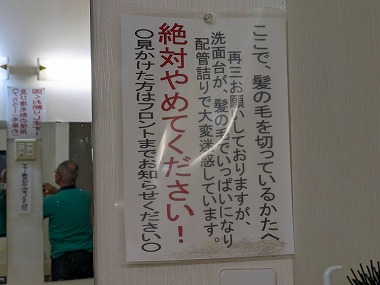 ここで、髪の毛を切っているかたへ
再三お願いしておりますが、
洗面台が、髪の毛でいっぱいになり
配管詰りで大変迷惑しています。
絶対やめてください！
〇見かけた方はフロントまでお知らせください〇